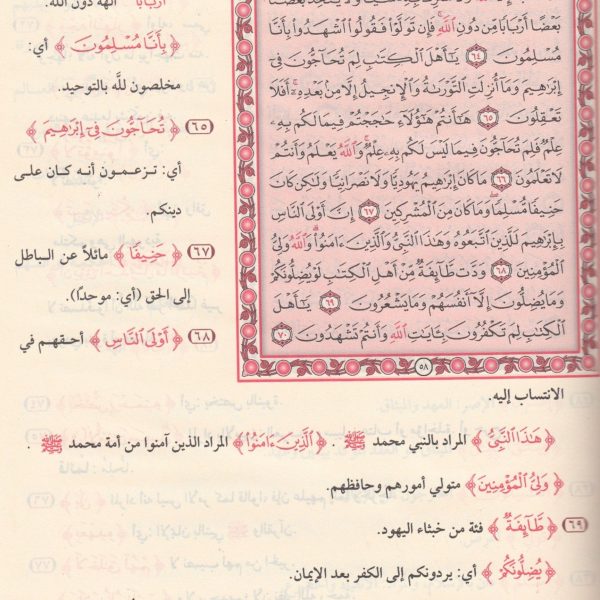 بَعْضًا أَرْبَابًا مِّن دُونِ اللَّهِ فَإِن تَوَلَّوْا فَقُولُوا اشْهَدُوا بِأَنَّا
مُسْلِمُونَ ٦٤ يَا أَهْلَ الْكِتَابِ لِمَ تُحَاجُّونَ فِي
إِبْرَاهِيمَ وَمَا أُنزِلَتِ التَّوْرَاةُ وَالْإِنجِيلُ إِلَّا مِن بَعْدِهِ أَفَلَا
تَعْقِلُونَ ٦٥ هَا أَنتُمْ هَؤُلَاءِ حَاجَجْتُمْ فِيمَا لَكُم بِهِ
عِلْمٌ فَلِمَ تُحَاجُّونَ فِيمَا لَيْسَ لَكُم بِهِ عِلْمٌ وَاللَّهُ يَعْلَمُ وَأَنتُمْ
لَا تَعْلَمُونَ ٦٦ مَا كَانَ إِبْرَاهِيمُ يَهُودِيًّا وَلَا نَصْرَانِيًّا وَلَكِن كَانَ
حَنِيفًا مُّسْلِمًا وَمَا كَانَ مِنَ الْمُشْرِكِينَ ٦٧ إِنَّ أَوْلَى النَّاسِ
بِإِبْرَاهِيمَ لَلَّذِينَ اتَّبَعُوهُ وَهَذَا النَّبِيُّ وَالَّذِينَ آمَنُوا وَاللَّهُ وَلِيُّ
الْمُؤْمِنِينَ ٦٨ وَدَّت طَّائِفَةٌ مِّنْ أَهْلِ الْكِتَابِ لَوْ يُضِلُّونَكُمْ
وَمَا يُضِلُّونَ إِلَّا أَنفُسَهُمْ وَمَا يَشْعُرُونَ ٦٩ يَا أَهْلَ
الْكِتَابِ لِمَ تَكْفُرُونَ بِآيَاتِ اللَّهِ وَأَنتُمْ تَشْهَدُونَ ٧٠
٥٨
﴿أَرْبَابًا﴾ آلهة دون الله.
﴿بِأَنَّا مُسْلِمُونَ﴾ أي:
مخلصون للَّه بالتوحيد.
٦٥ ﴿تُحَاجُّونَ فِي إِبْرَاهِيمَ﴾
أي: تزعمون أنه كان على
دينكم.
٦٧ ﴿حَنِيفًا﴾ مائلاً عن الباطل
إلى الحق (أي: موحدًا)).
٦٨ ﴿أَوْلَى النَّاسِ﴾ أحقهم في
الانتساب إليه.
﴿هَذَا النَّبِيُّ﴾ المراد بالنبي محمد ﷺ . ﴿الَّذِينَ آمَنُوا﴾ المراد الذين آمنوا من أمة محمد ﷺ .
﴿وَلِيُّ الْمُؤْمِنِينَ﴾ متولي أمورهم وحافظهم.
٦٩ ﴿طَّائِفَةٌ﴾ فئة من خبثاء اليهود.
﴿يُضِلُّونَكُمْ﴾ أي: يردونكم إلى الكفر بعد الإيمان.